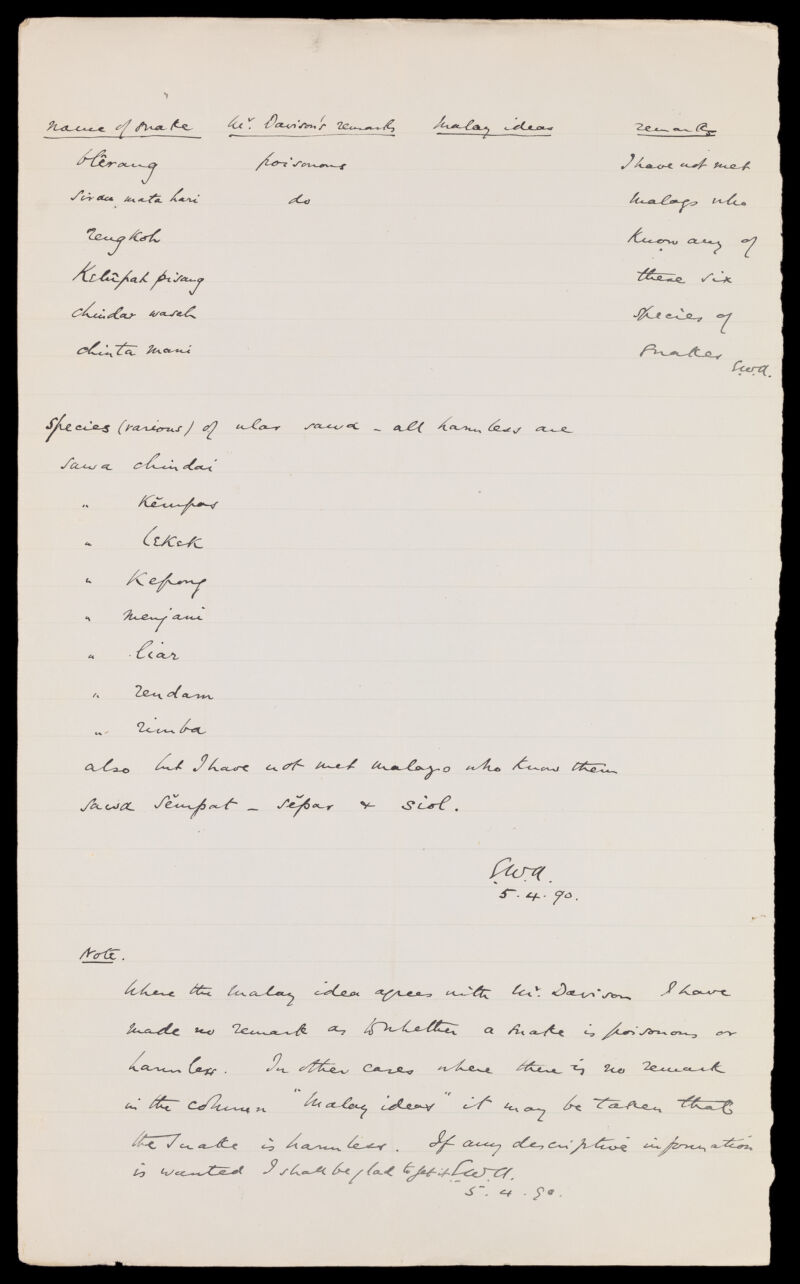 name of snake Mr. Davison's remarks Malay ideas remarks
blêrang poisonous I have not met
mata hari do Malays who
rengkoh know any of
Kelŭpah pisang these six
chindar waseh species of
chinta mani snakes S.W.A.
Species (various) of ular sawa - all harmless are
sawa chindai
" Kĕmpas
" lekek
" Kepong
" menjani
" liar
" rendam
" rimba
also but I have not met malays who know them
sawa sĕmpat - sĕpar & siol.
S.W.A.
5.4.90.
Note.
Where the Malay idea agrees with Mr. Davison I have
made no remark as to whether a snake is poisonous or
harmless. In other cases where there is no remark
in the column "Malay ideas" it may be taken that
the snake is harmless. If any descriptive information
is wanted I shall be glad to get it S.W.A.
5.4.90.